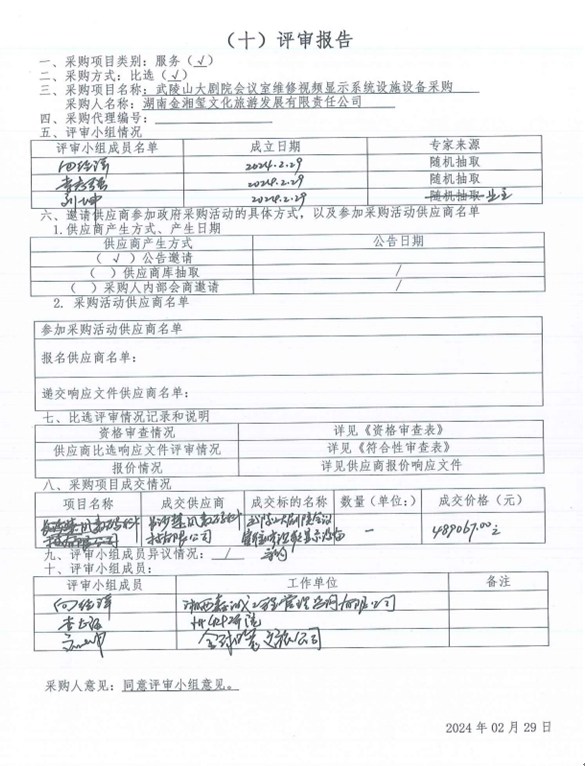 （十）评审报告
一、采购项目类别：服务（√）
二、采购方式：比选（√）
三、采购项目名称：武陵山大剧院会议室维修视频显示系统设施设备采购
采购人名称：湖南金湘玺文化旅游发展有限责任公司
四、采购代理编号：
五、评审小组情况
评审小组成员名单 成立日期 专家来源
2024.2.29 随机抽取
2024.2.29 随机抽取
2024.2.29 随机抽取 业主
六、邀请供应商参加政府采购活动的具体方式，以及参加采购活动供应商名单
1.供应商产生方式、产生日期
供应商产生方式 公告日期
（√）公告邀请
（ ）供应商库抽取 /
（ ）采购人内部会商邀请 /
2. 采购活动供应商名单
参加采购活动供应商名单
报名供应商名单：
递交响应文件供应商名单：
七、比选评审情况记录和说明
资格审查情况 详见《资格审查表》
供应商比选响应文件评审情况 详见《符合性审查表》
报价情况 详见供应商报价响应文件
八、采购项目成交情况
项目名称 成交供应商 成交标的名称 数量（单位:） 成交价格（元）
一 489067.00元
有限公司
九、评审小组成员异议情况： /
十、评审小组成员：
评审小组成员 工作单位 备注
采购人意见：同意评审小组意见。
2024年02月29日